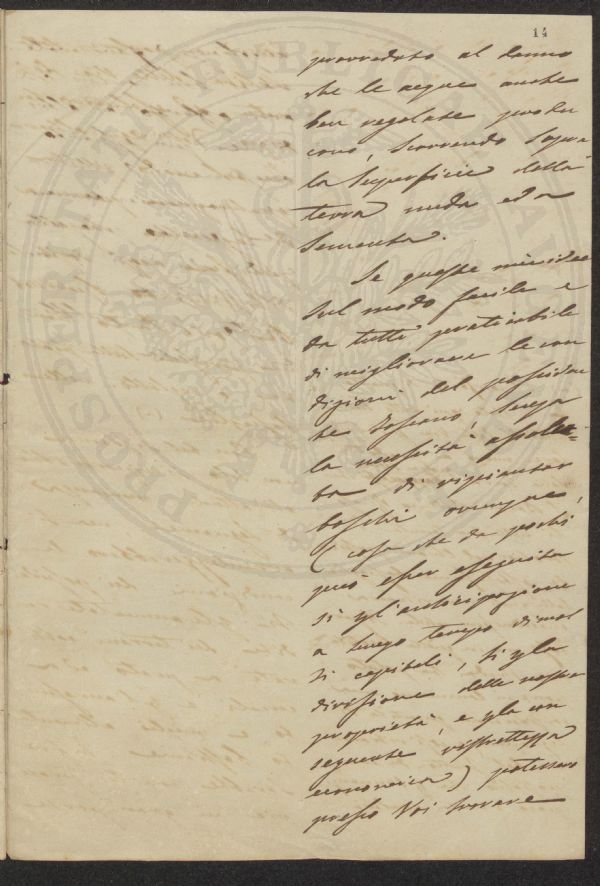 14
provveduto al danno
che le acque anche
ben regolate produ
cono, scorrendo sopra
la superficie della
terra nuda ed a
sementa.
Se queste mie idee
sul modo facile e
da tutti praticabile
di migliorare le con
dizioni del possiden
te toscano, senza
la necessità assolu=
ta di ripiantar
boschi ovunque,
(cosa che da pochi
può esser eseguita
sì pl'anticipazione
a lungo tempo di mol
ti capitali, sì pla
divisione delle nostre
proprietà, e pla con
seguente ristrettezza
economica) potessero
presso Voi trovare
PROSPERITATI PUBLICAE